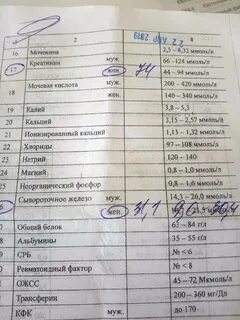 2 2 АПР 2019
2
16 Мочевина 2,5 – 8,32 ммоль/л
17 Креатинин муж. 66 – 124 ммоль/л
жен. 74 44 – 94 ммоль/л
18 Мочевая кислота муж. 200 – 420 ммоль/л
жен. 140 – 340 ммоль/л
19 Калий 3,8 – 5,3
20 Кальций 2,15 – 2,57 ммоль/л
21 Ионизированный кальций 1,13 – 1,32 ммоль/л
22 Хлориды 97 – 108 ммоль/л
23 Натрий 120 – 140
24 Магний 0,8 – 1,0 ммоль/л
25 Неорганический фосфор 0,8 – 1,6 ммоль/л
Сывороточное железо муж. 14,3 – 26,0 ммоль/л
жен. 31,1
Общий белок г/л
Альбумины 35 – 55 г/л
СРБ № < 6
Ревматоидный фактор № < 8
ОЖСС 45 – 72 Мкмоль/л
Трансферин 200 – 360 мг/Дл
КФК муж. до 170